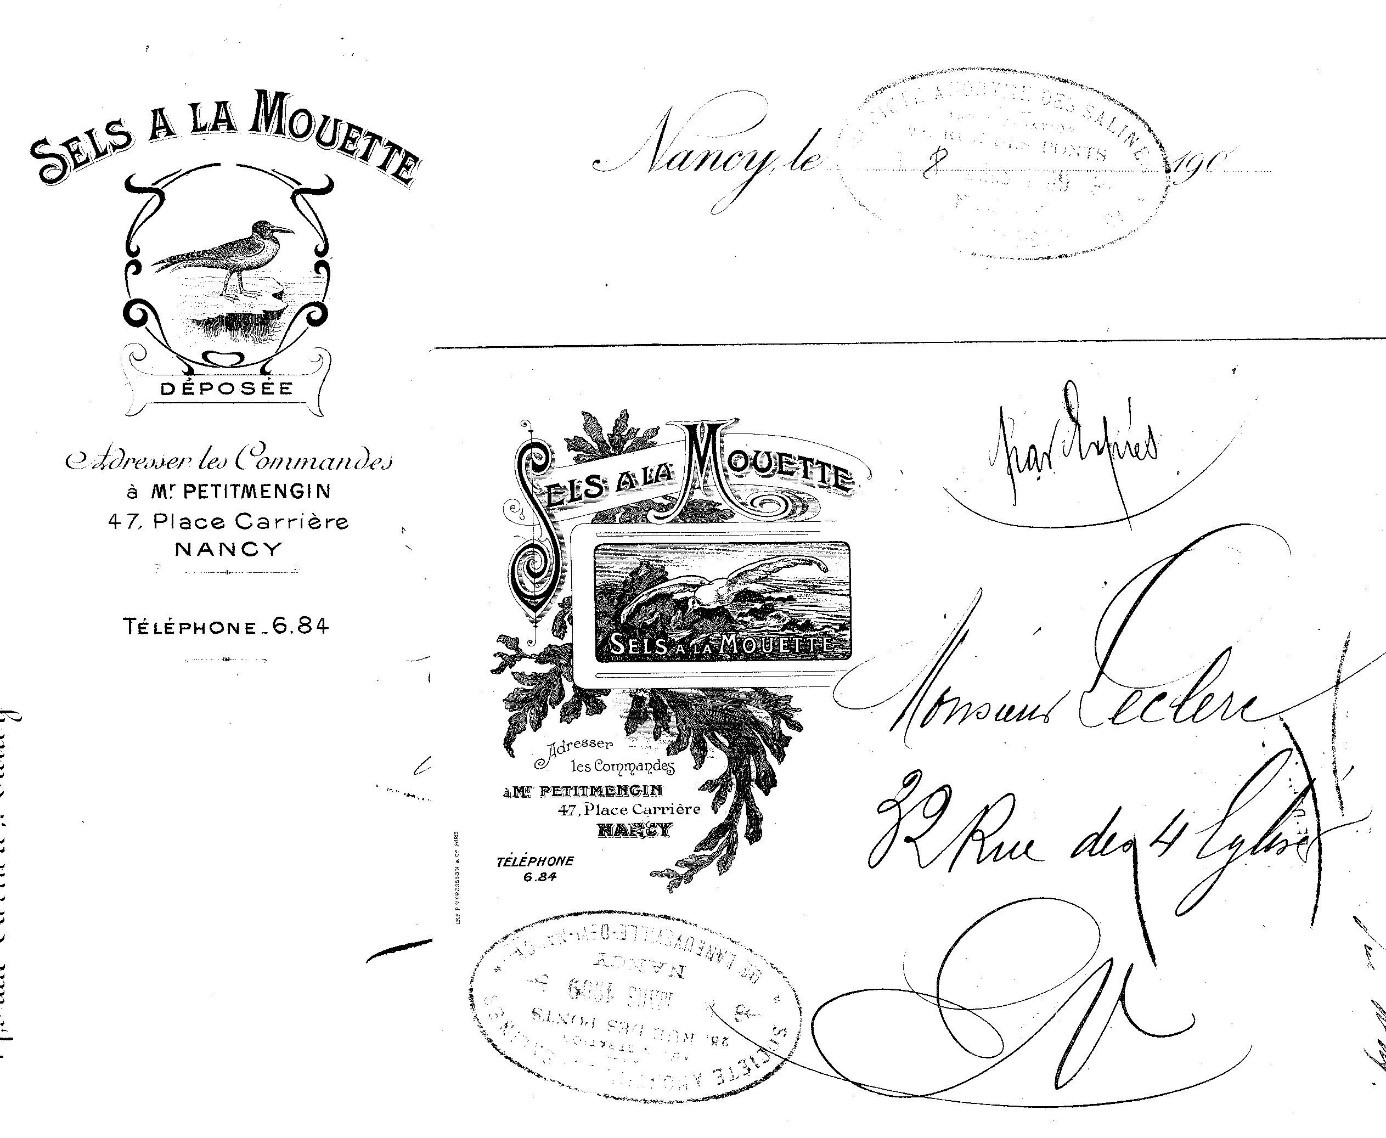 SELS A LA MOUETTE
DÉPOSÉE
Adresser les Commandes
à Mr PETITMENGIN
47, Place Carrière
NANCY
TÉLÉPHONE_6.84
Nancy, le 8 190
SOCIÉTÉ ANONYME DES SALINES
RUE DES PONTS
par Exprès
SELS A LA MOUETTE
SELS A LA MOUETTE
Adresser
les Commandes
à Mr PETITMENGIN
47, Place Carrière
NANCY
TÉLÉPHONE
6.84
Monsieur Leclerc
32 Rue des 4 Eglises
SOCIÉTÉ ANONYME
28, RUE DES PONTS
MARS 1909
NANCY